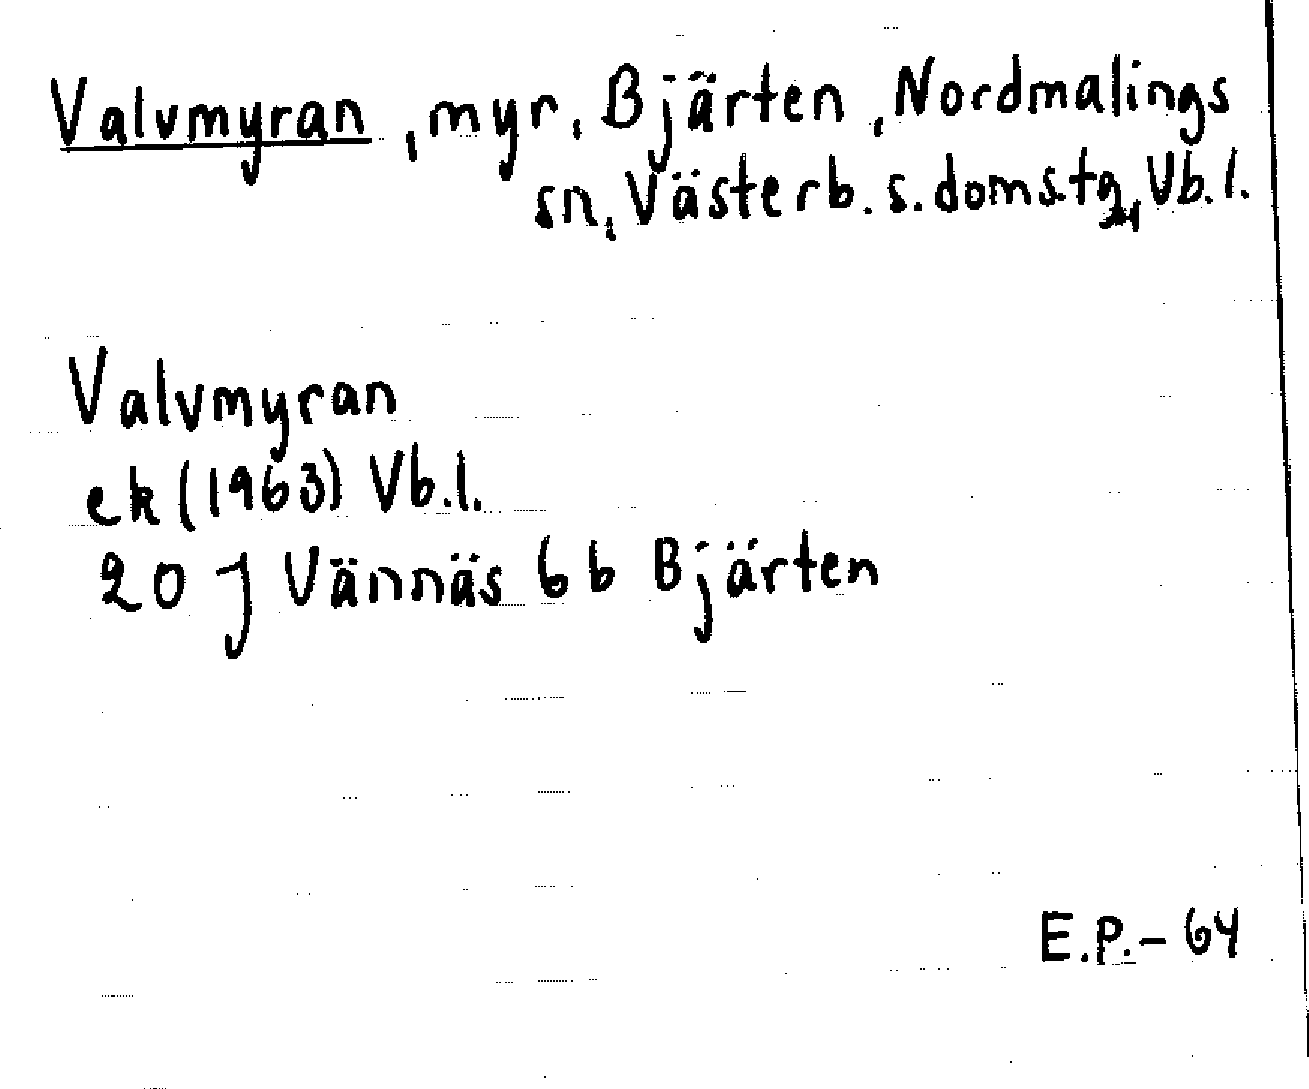 Valvmyran, myr, Bjärten, Nordmalings
sn, Västerb. s. domstg, Vb. l.
Valvmyran
ek (1963) Vb. l.
20 J Vännäs 6 b Bjärten
E.P. - 64